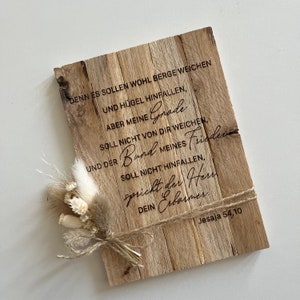 DENN ES SOLLEN WOHL BERGE WEICHEN
UND HÜGEL HINFALLEN,
ABER MEINE Gnade
SOLL NICHT VON DIR WEICHEN,
UND DER Bund MEINES Friedens
SOLL NICHT HINFALLEN,
spricht der Herr,
DEIN Erbarmer.
Jesaja 54,10